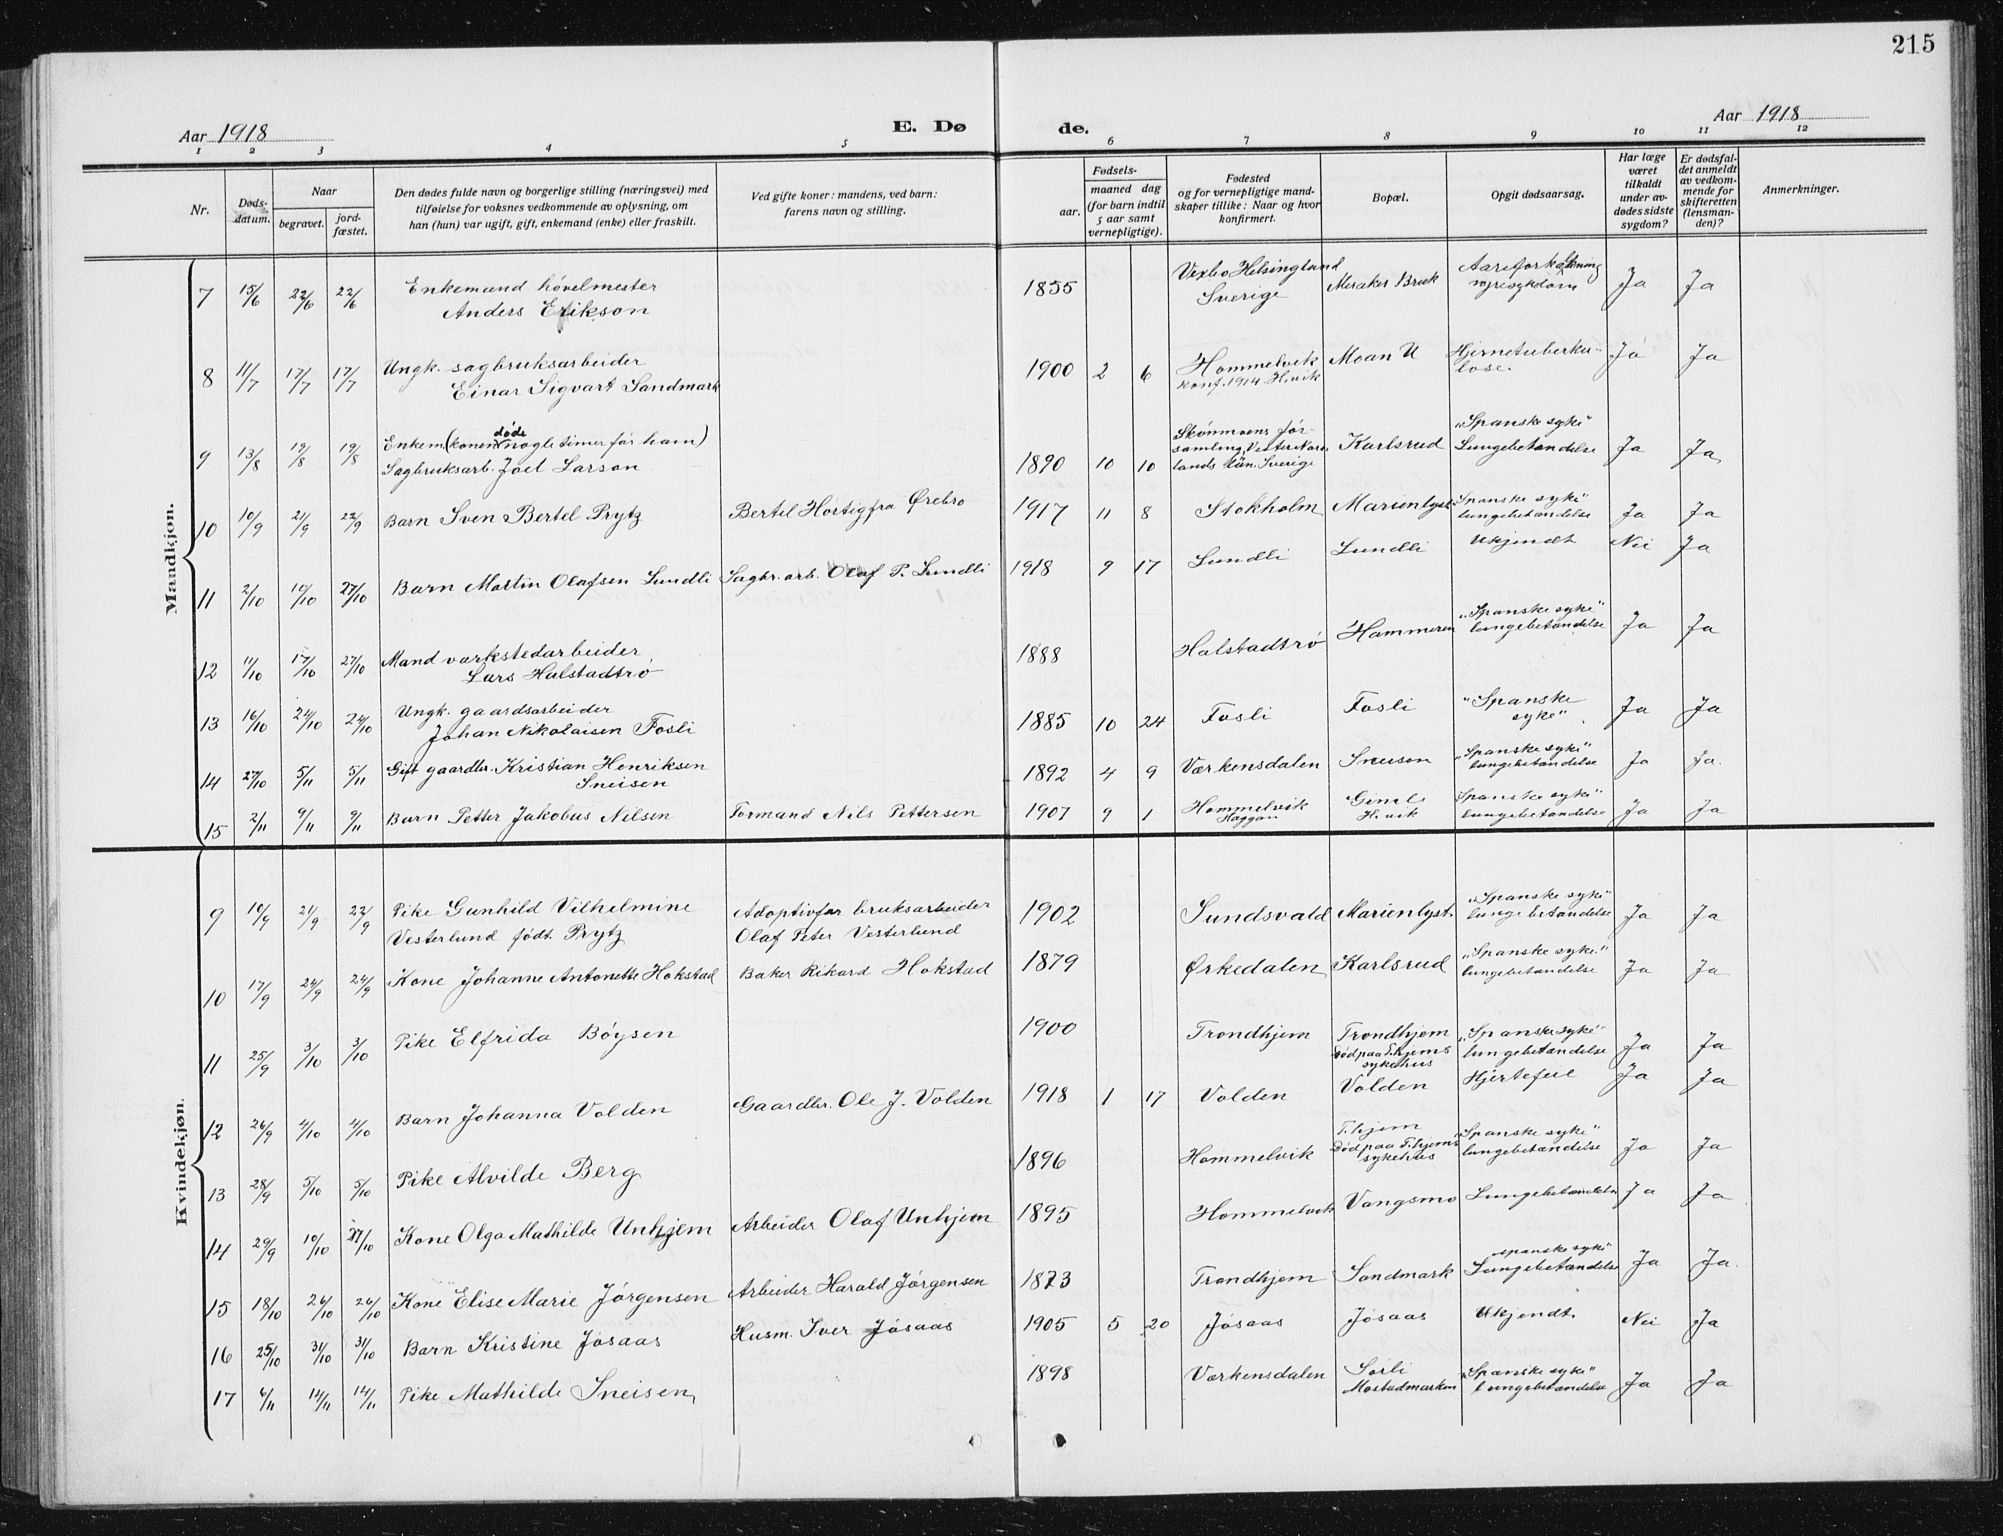 215
Aar 1918 E. Dø de. Aar 1918
1 2 3 4 5 6 7 8 9 10 11 12
Nr.
Døds-
datum.
Naar
begravet.
jord-
fæstet.
Den dødes fulde navn og borgerlige stilling (næringsvei) med
tilføielse for voksnes vedkommende av oplysning, om
han (hun) var ugift, gift, enkemand (enke) eller fraskilt.
Ved gifte koner: mandens, ved barn:
farens navn og stilling.
Fødsels-
aar.
maaned dag
(for barn indtil
5 aar samt
vernepligtige).
Fødested
og for vernepligtige mand-
skaper tillike: Naar og hvor
konfirmert.
Bopæl.
Opgit dødsaarsag.
Har læge
været
tilkaldt
under av-
dødes sidste
sygdom?
Er dødsfal-
det anmeldt
av vedkom-
mende for
skifteretten
(lensman-
den)?
Anmerkninger.
Mandkjøn.
7 15/6 22/6 22/6 Enkemand høvelmester
Anders Erikson
1855 Vexbo Helsingland
Sverige
Meraker Bruk
Aareforkalkning
nyresykdom
Ja Ja
8 11/7 17/7 17/7 Ungk. sagbruksarbeider
Einar Sigvart Sandmark
1900 2 6 Hommelvik
konf. 1914 H.vik
Moan U
Hjernetuberku-
lose.
Ja Ja
9 13/8 19/8 19/8 Enkem (konen døde nogle timer før ham)
Sagbruksarb. Joel Larson
1890 10 10 Skönmoens för-
samling, Vester Nor-
lands län. Sverige
Karlsrud
"Spanske syke"
Lungebetændelse
Ja Ja
10 10/9 21/9 22/9 Barn Sven Bertel Prytz Bertel Hortig fra Ørebro
1917 11 8 Stokholm Marienlyst
Spanske syke"
lungebetændelse
Ja Ja
11 2/10 10/10 27/10 Barn Martin Olafsen Lundli Sagbr.arb. Olaf P. Lundli
1918 9 17 Lundli Lundli Ukjendt Nei Ja
12 11/10 17/10 27/10 Mand værkstedarbeider
Lars Halstadtrø
1888 Halstadtrø Hammeren
"Spanske syke"
lungebetændelse
Ja Ja
13 16/10 24/10 24/10 Ungk. gaardsarbeider
Johan Nikolaisen Fosli
1885 10 24 Fosli Fosli
"Spanske
syke"
Ja Ja
14 27/10 5/11 5/11 Gift gaardbr. Kristian Henriksen
Sneisen
1892 4 9 Værkensdalen Sneisen
"Spanske syke"
lungebetændelse
Ja Ja.
15 2/11 9/11 9/11 Barn Petter Jakobus Nilsen Formand Nils Pettersen
1907 9 1 Hommelvik
Haggan
Gimle
H.vik
Spanske syke"
lungebetændelse
Ja Ja
Kvindekjøn.
9 10/9 21/9 22/9 Pike Gunhild Vilhelmine
Vesterlund født Prytz
Adoptivfar bruksarbeider
Olaf Peter Vesterlund
1902 Sundsvald Marienlyst.
"Spanske syke"
lungebetændelse
Ja Ja
10 17/9 24/9 24/9 Kone Johanne Antonette Hokstad Baker Rikard Hokstad
1879 Ørkedalen Karlsrud
"Spanske syke"
lungebetændelse
Ja Ja
11 25/9 3/10 3/10 Pike Elfrida Bøysen
1900 Trondhjem Trondhjem
Død paa T.hjems
sykehus
"Spanske syke"
lungebetændelse
Ja Ja
12 26/9 4/10 4/10 Barn Johanna Volden Gaardbr. Ole J. Volden
1918 1 17 Volden Volden Hjertefeil Ja Ja
13 28/9 5/10 5/10 Pike Alvilde Berg
1896 Hommelvik
T.hjem
Død paa T.hjems
sykehus
"Spanske syke"
lungebetændelse
Ja Ja
14 29/9 10/10 27/10 Kone Olga Mathilde Unhjem Arbeider Olaf Unhjem
1895 Hommelvik Vangsmo Lungebetændelse Ja Ja
15 18/10 26/10 26/10 Kone Elise Marie Jørgensen Arbeider Harald Jørgensen
1873 Trondhjem Sandmark
spanske syke
Lungebetændelse
Ja Ja.
16 25/10 31/10 31/10 Barn Kristine Jøsaas Husm. Iver Jøsaas
1905 5 20 Jøsaas Jøsaas Ukjendt. Nei Ja
17 6/11 14/11 14/11 Pike Mathilde Sneisen
1898 Værkensdalen
Sørli
Mostadmarken
"Spanske syke"
lungebetændelse
Ja Ja